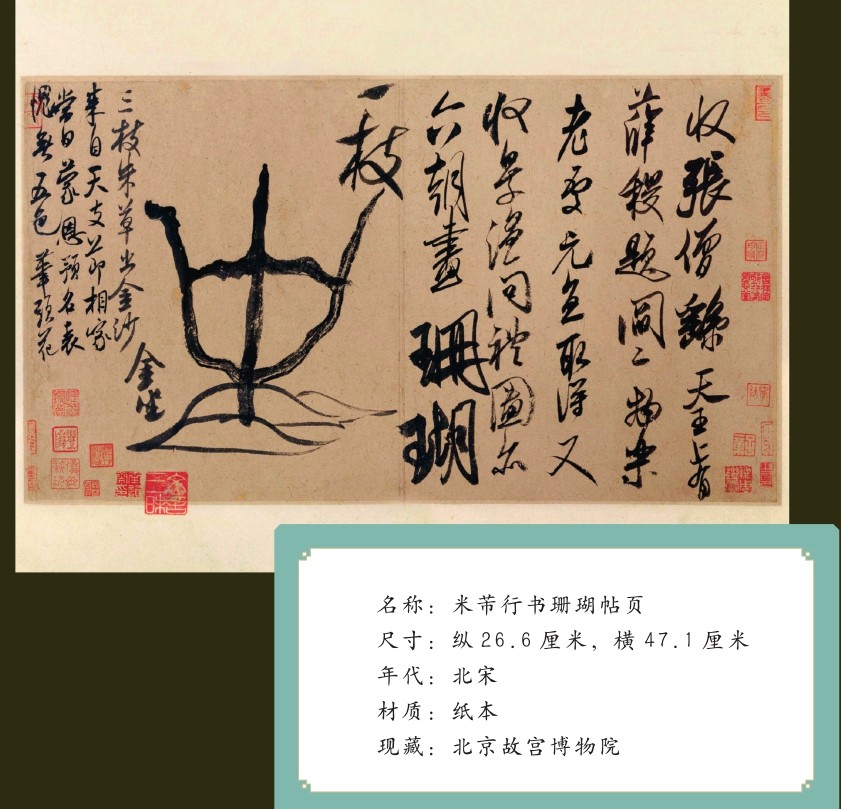 收張僧繇天王上有
薛稷題閻二物樂
老處元直取得又
收景温問禮圖亦
六朝畫珊瑚
一枝
金坐
三枝朱草出金沙
來自天支節相家
當日蒙恩預名表
愧無五色筆頭花
名称：米芾行书珊瑚帖页
尺寸：纵 26.6 厘米，横 47.1 厘米
年代：北宋
材质：纸本
现藏：北京故宫博物院